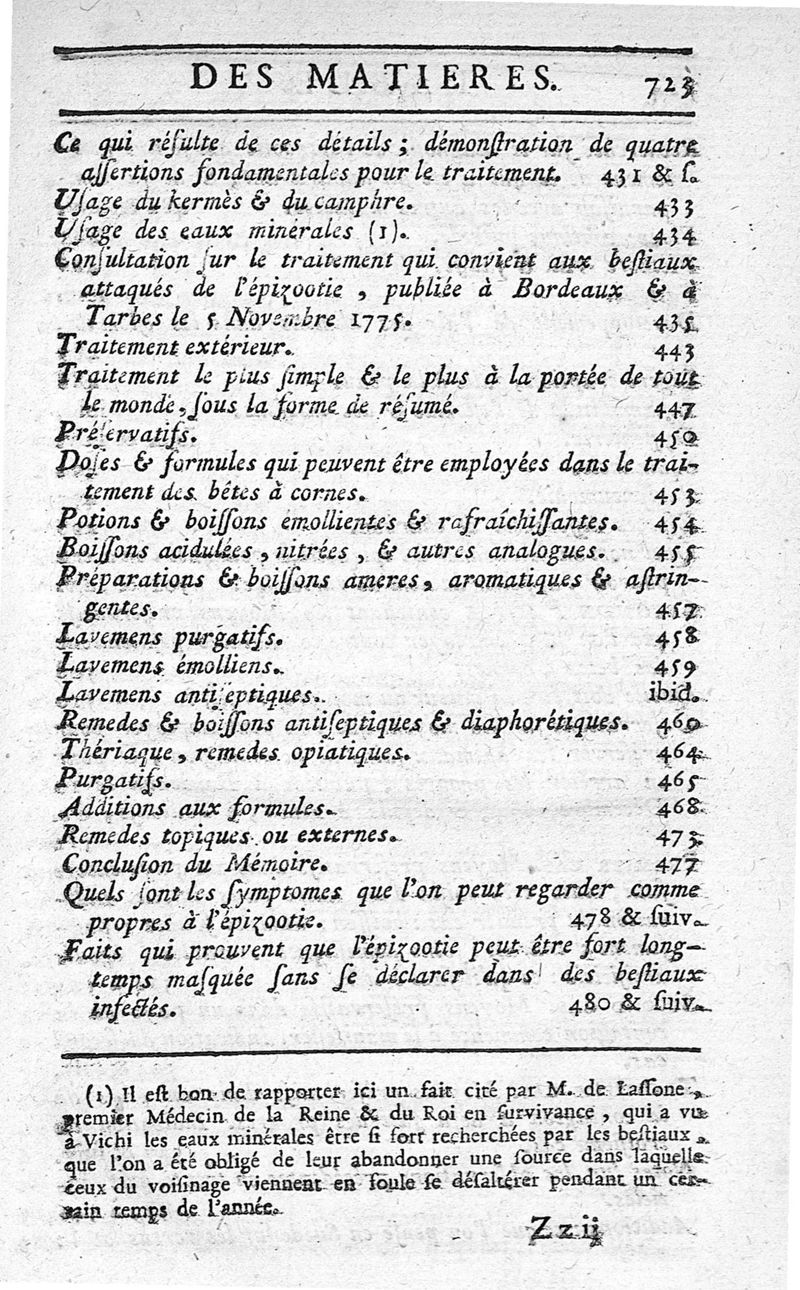 DES MATIERES. 723
Ce qui réſulte de ces détails ; démonſtration de quatre
aſſertions fondamentales pour le traitement. 431 & ſ.
Uſage du kermès & du camphre. 433
Uſage des eaux minérales (1). 434
Conſultation ſur le traitement qui convient aux beſtiaux
attaqués de l'épizootie , publiée à Bordeaux & à
Tarbes le 5 Novembre 1775. 435
Traitement extérieur. 443
Traitement le plus ſimple & le plus à la portée de tout
le monde, ſous la forme de réſumé. 447
Préſervatifs. 450
Doſes & formules qui peuvent être employées dans le trai-
tement des bêtes à cornes. 453
Potions & boiſſons émollientes & rafraîchiſſantes. 454
Boiſſons acidulées , nitrées , & autres analogues. 455
Préparations & boiſſons ameres, aromatiques & aſtrin-
gentes. 457
Lavemens purgatifs. 458
Lavemens émolliens. 459
Lavemens antiſeptiques. ibid.
Remedes & boiſſons antiſeptiques & diaphorétiques. 460
Thériaque, remedes opiatiques. 464
Purgatifs. 465
Additions aux formules. 468
Remedes topiques ou externes. 473
Concluſion du Mémoire. 477
Quels ſont les ſymptomes que l'on peut regarder comme
propres à l'épizootie. 478 & ſuiv.
Faits qui prouvent que l'épizootie peut être fort long-
temps maſquée ſans ſe déclarer dans des beſtiaux
infectés. 480 & ſuiv.
(1) Il eſt bon de rapporter ici un fait cité par M. de Laſſone ,
premier Médecin de la Reine & du Roi en ſurvivance , qui a vu
à Vichi les eaux minérales être ſi fort recherchées par les beſtiaux ,
que l'on a été obligé de leur abandonner une ſource dans laquelle
ceux du voiſinage viennent en foule ſe déſaltérer pendant un cer-
tain temps de l'année.
Z z ij